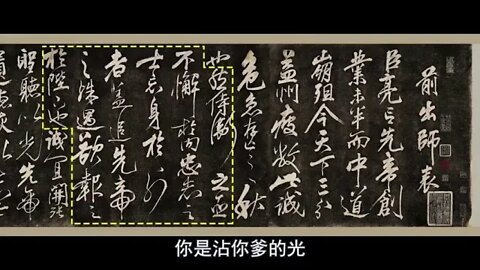 前出師表
臣亮言先帝創
業未半而中道
崩殂今天下三分
益州疲敝此誠
危急存亡之秋
也然侍衛之臣
不懈於內忠志之
士忘身於外
者蓋追先帝
之殊遇欲報之
於陛下也誠宜開張
聖聽以光先帝
你是沾你爹的光